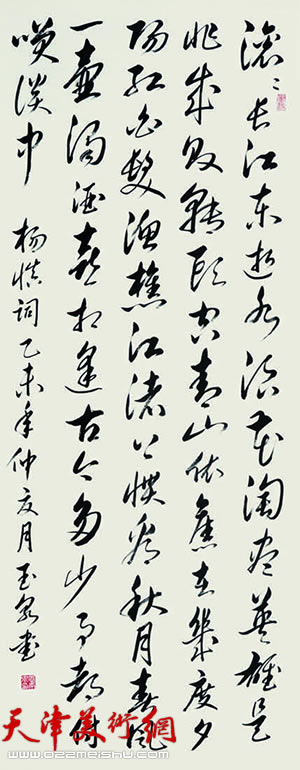 滚〻长江东逝水浪花淘尽英雄是
非成败转头空青山依旧在几度夕
阳红白发渔樵江渚上惯看秋月春风
一壶浊酒喜相逢古今多少事都付
笑谈中
杨慎词 乙未年仲夏月玉泉书
天津美術網
www.022meishu.com